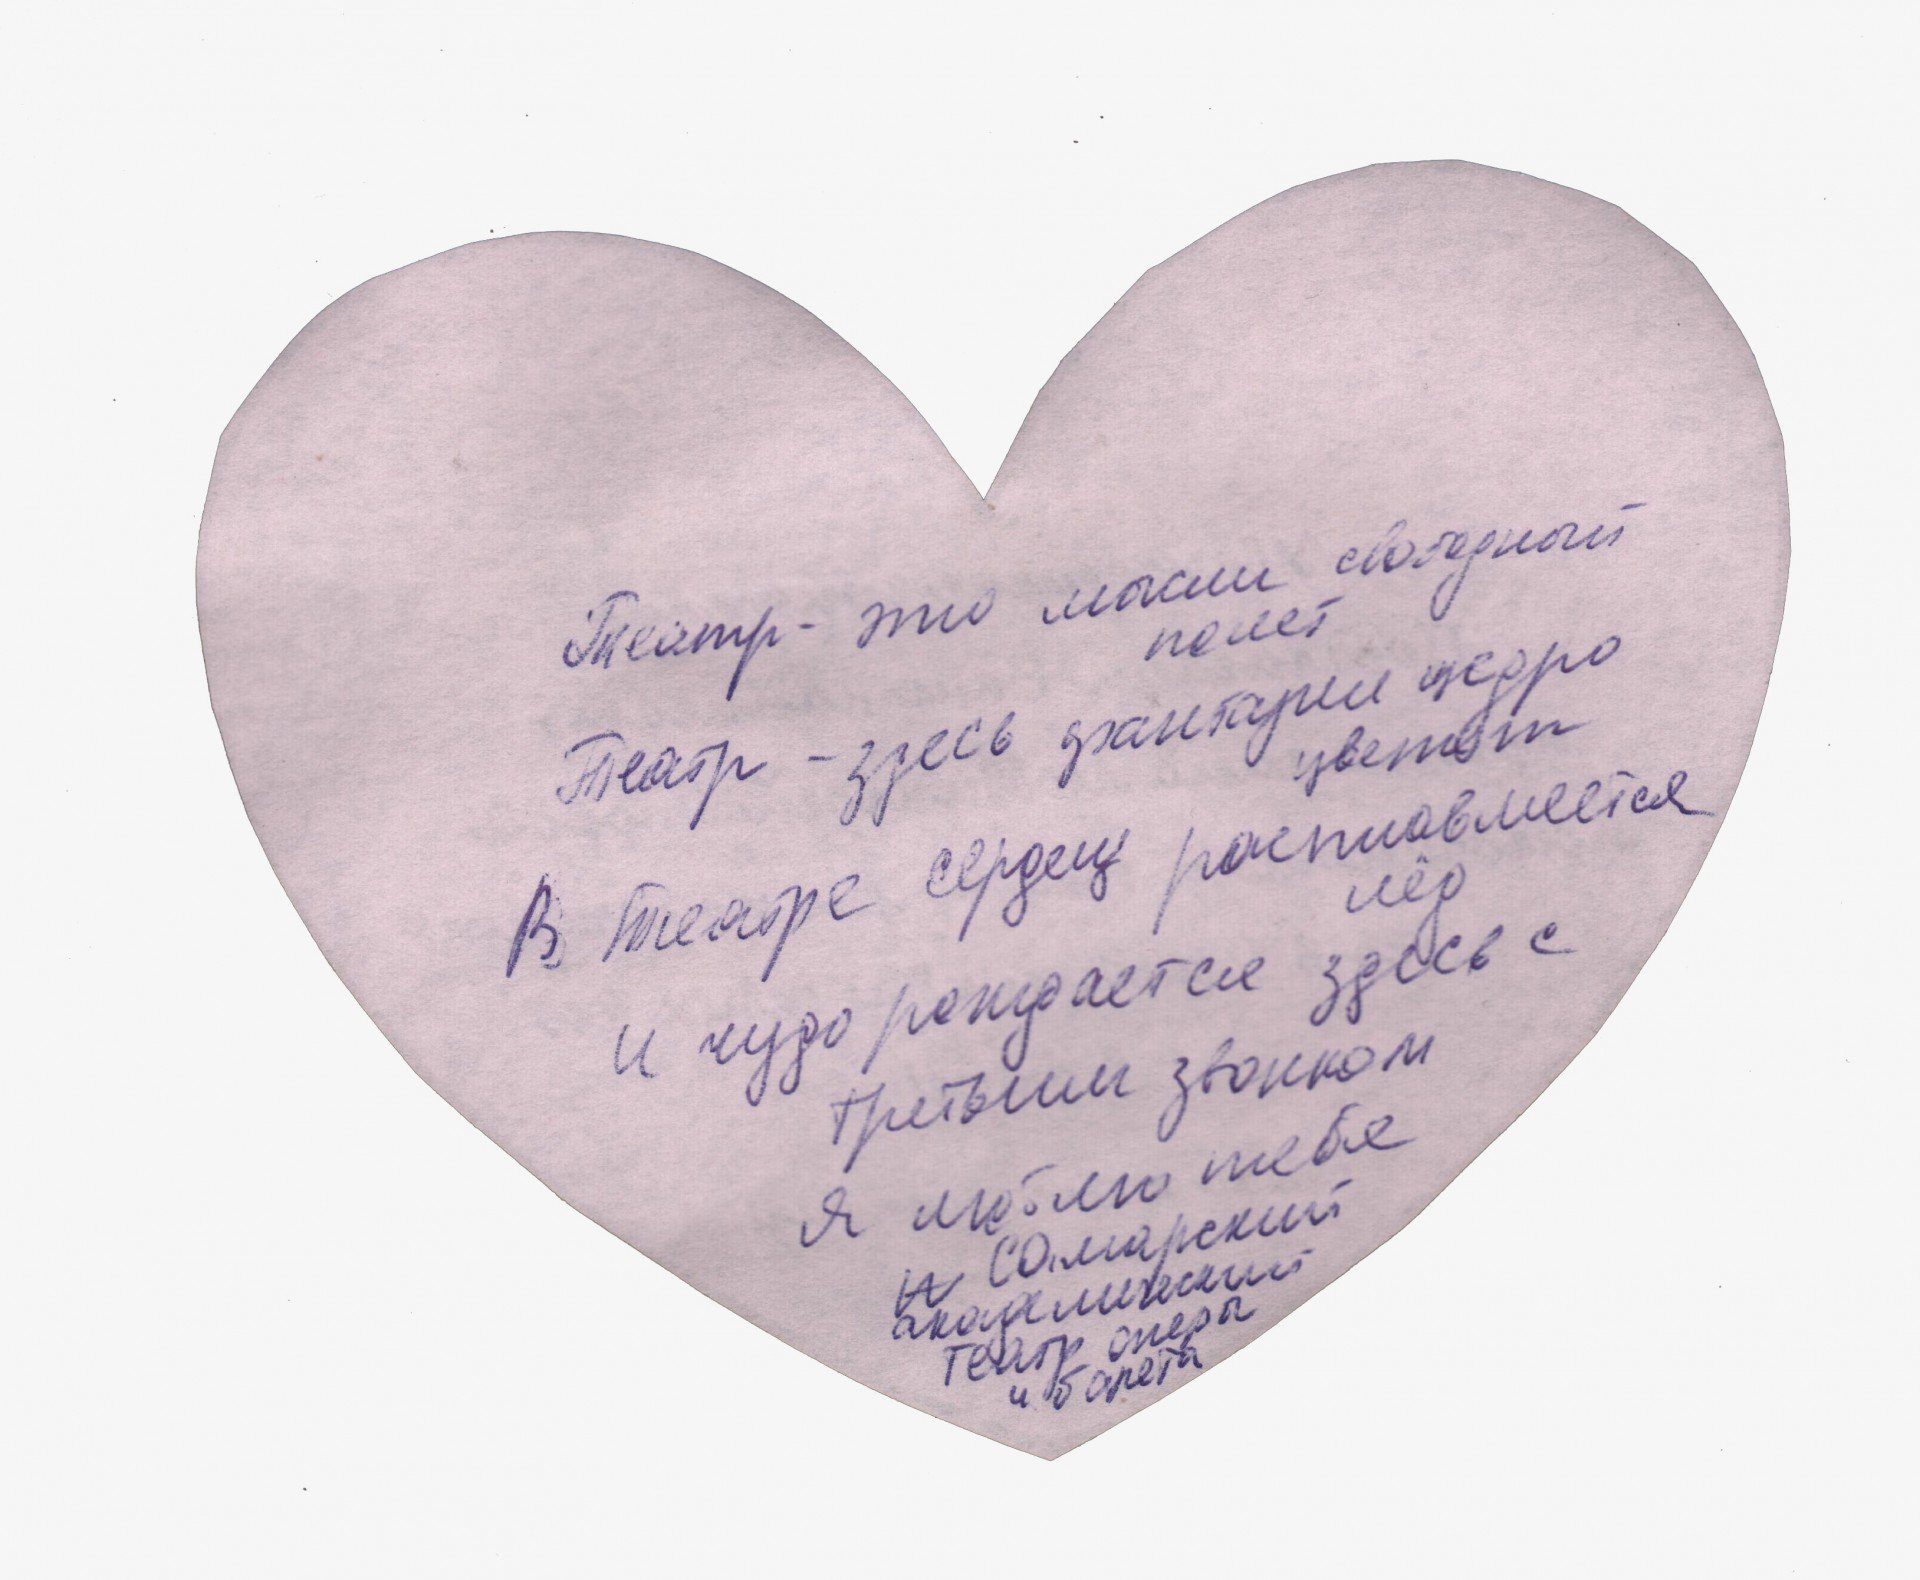 Театр - это мысли свободный
полет
Театр - здесь фантазия щедро
цветет
В театре сердец расплавляется
лёд
И чудо рождается здесь с
третьим звонком
Я люблю тебя
Самарский
академический
театр оперы
и балета